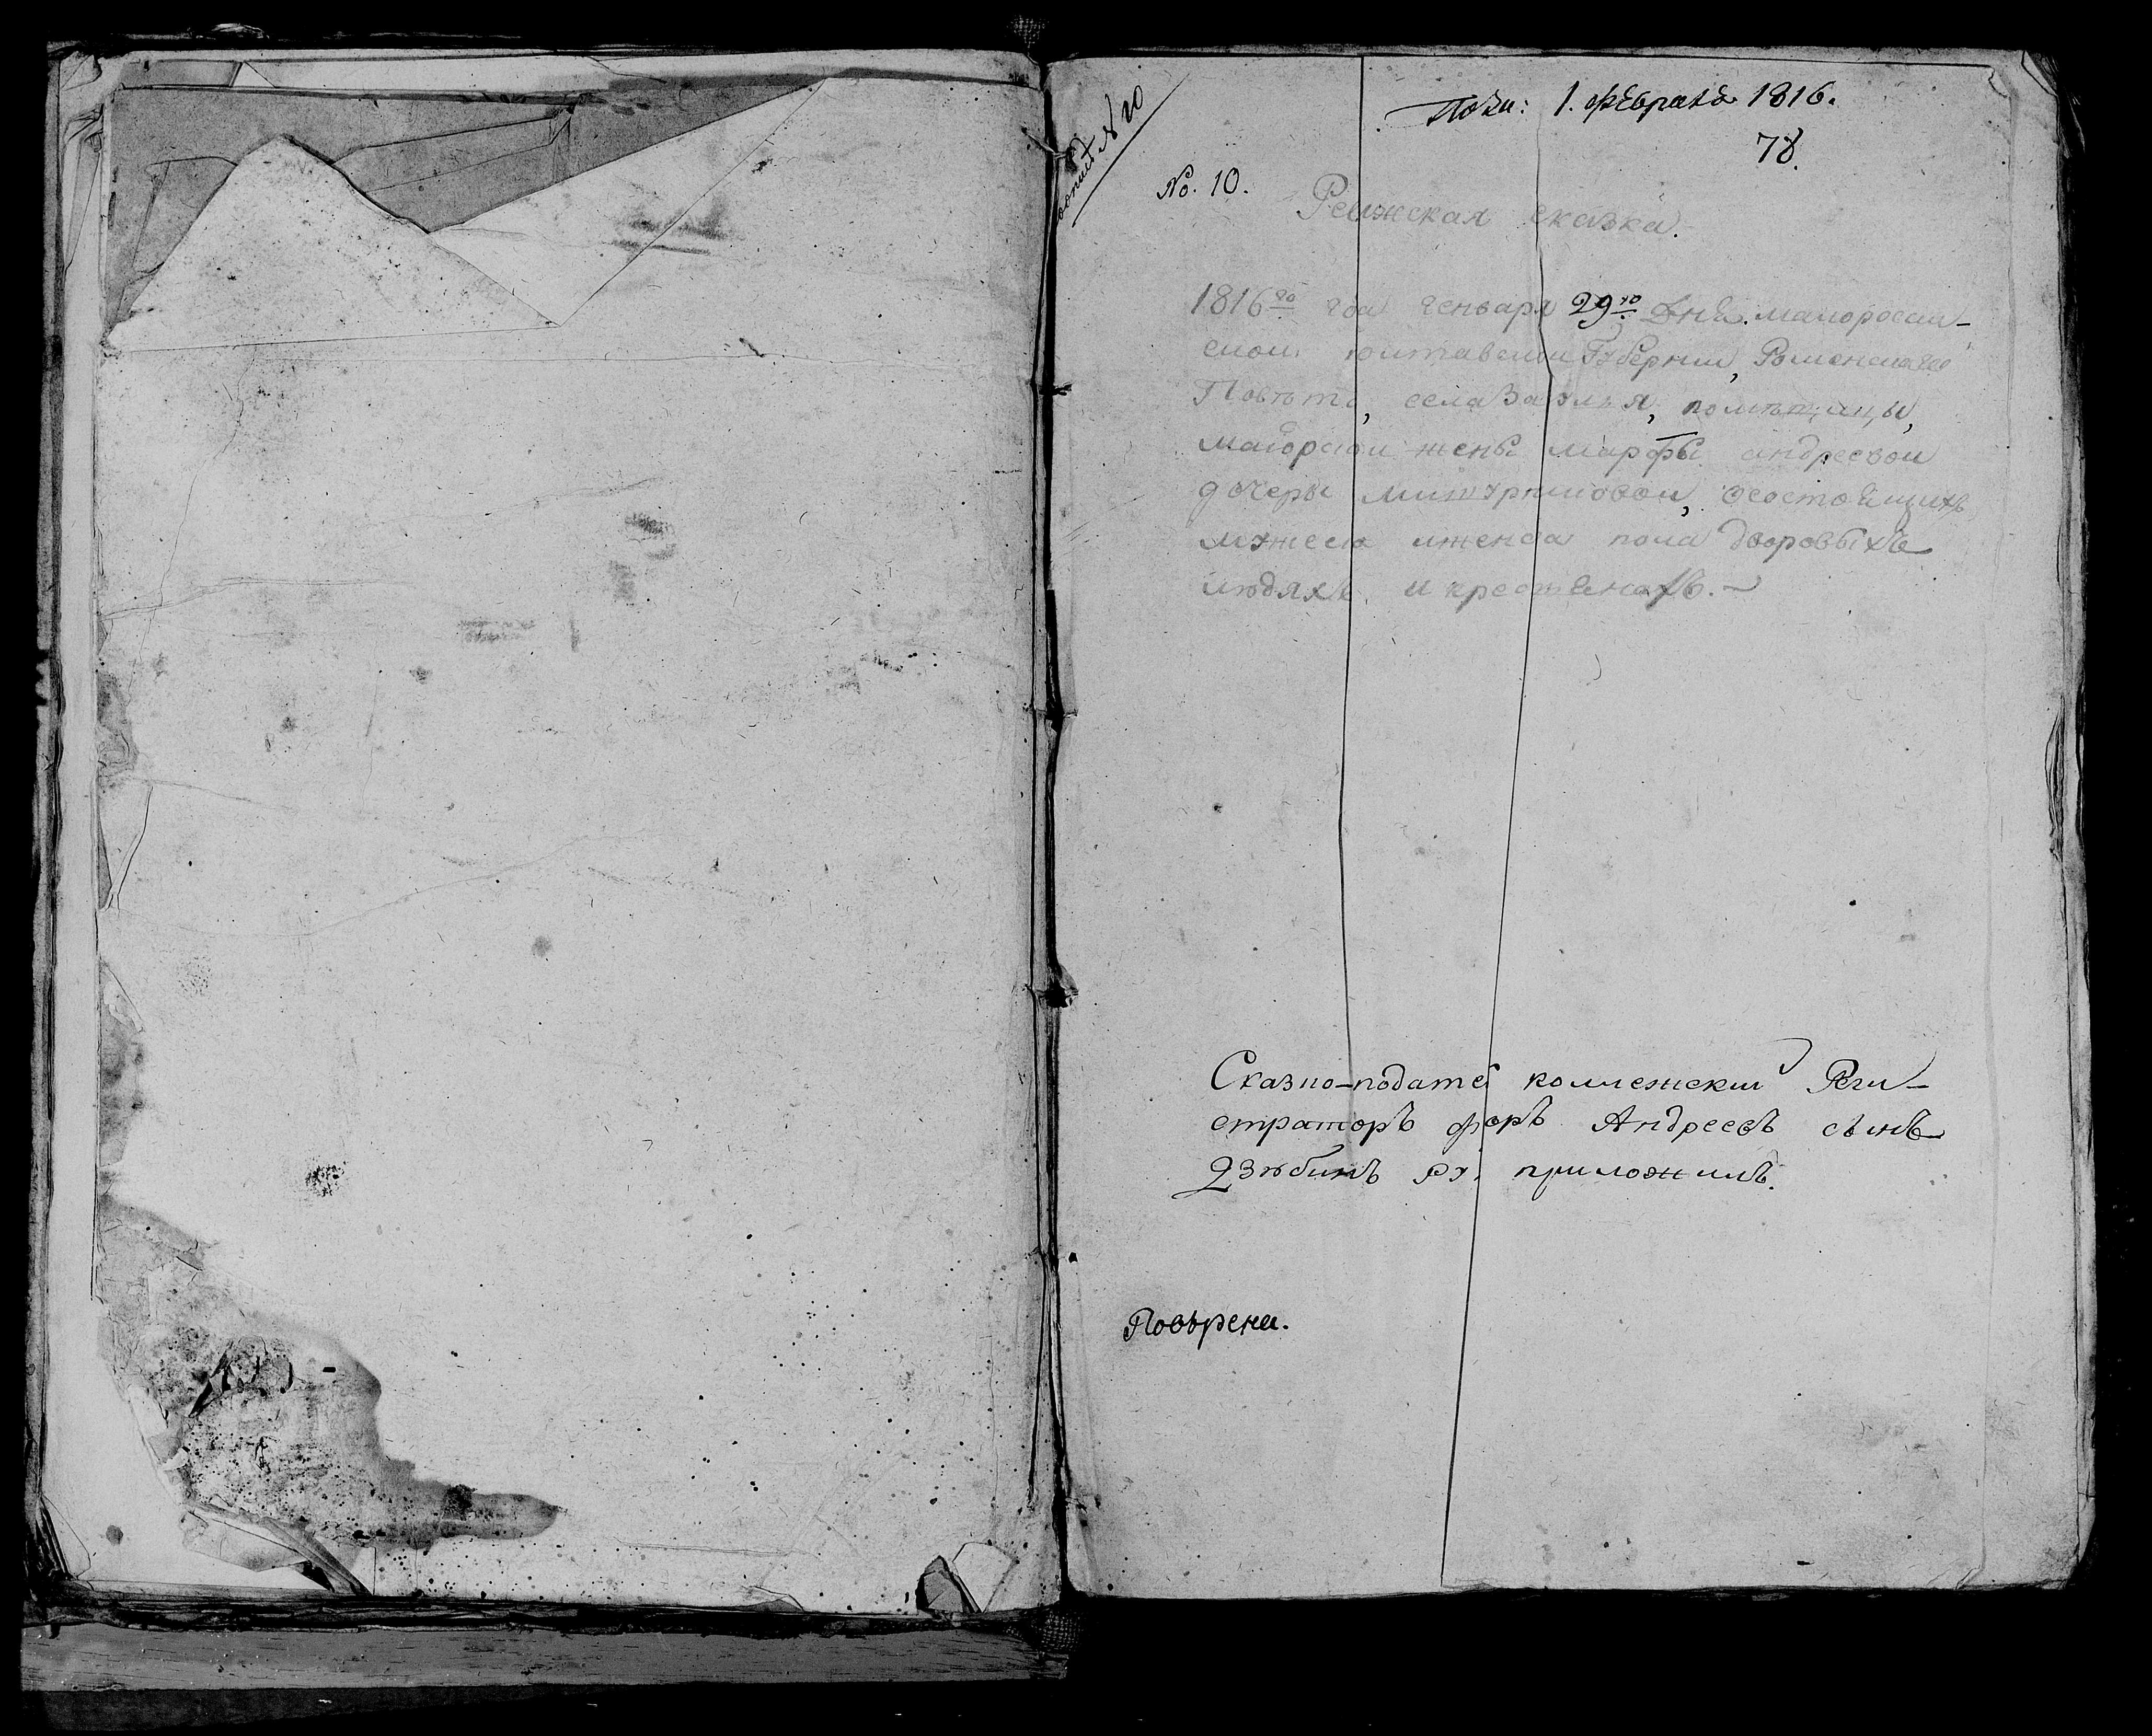 Пода: 1. февраля 1816.
78.
№ 20
No. 10.
Ревижская сказка.
1816го года генваря 29го дня. малоросси-
скои полтавскои Губернии, Роменскаго
Повѣта, села Заулья, помѣщицы,
маiорскои жены марфы андреевои
дочеры, осостоящихъ
мужеска иженска пола дворовыхъ
людяхъ. и крестянахъ.
Сказко-податель коллежскии Реги-
страторъ Андреевъ сынъ
приложилъ.
Повѣрена.